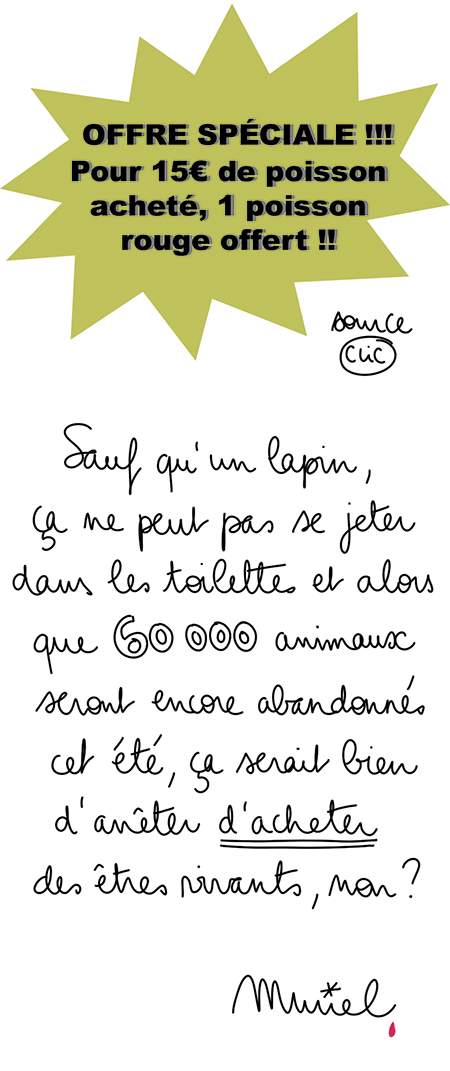 OFFRE SPÉCIALE !!!
Pour 15€ de poisson
acheté, 1 poisson
rouge offert !!
source
CLiC
Sauf qu'un lapin,
ça ne peut pas se jeter
dans les toilettes et alors
que 60 000 animaux
seront encore abandonnés
cet été, ça serait bien
d'arrêter d'acheter
des êtres vivants, non ?
Muriel